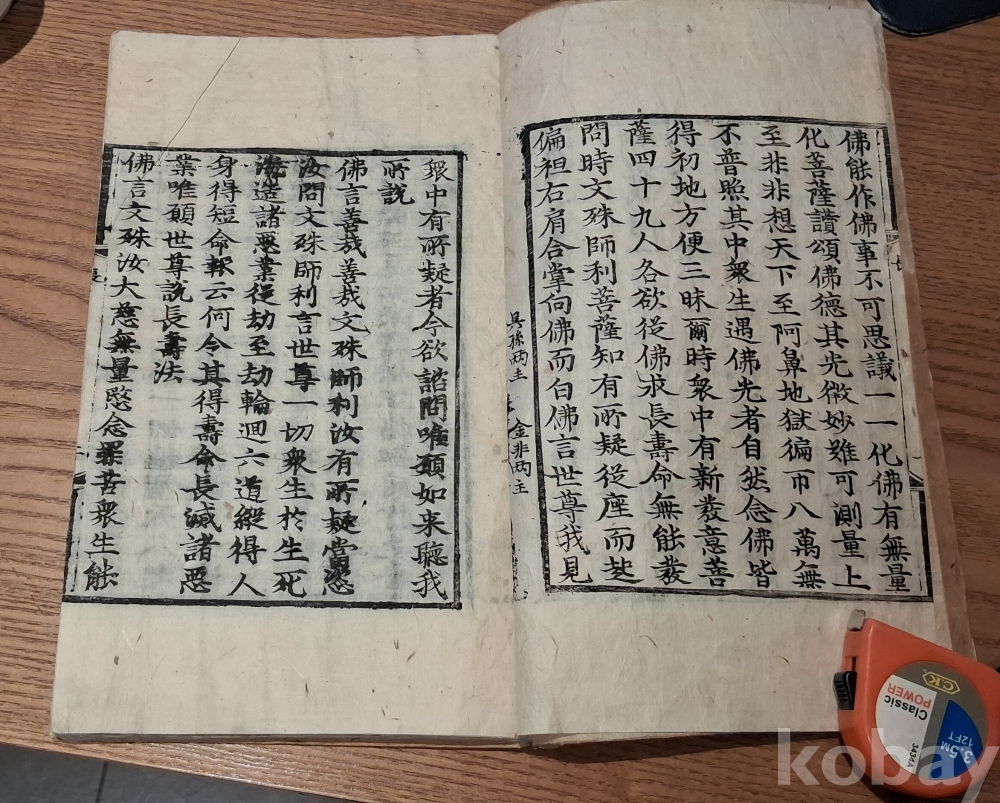 佛能作佛事不可思議一一化佛有無量
化菩薩讚頌佛德其光微妙難可測量上
至非非想天下至阿鼻地獄徧帀八萬無
不普照其中衆生遇佛光者自然念佛皆
得初地方便三昧爾時衆中有新發意菩
薩四十九人各欲從佛求長壽命無能發
問時文殊師利菩薩知有所疑從座而起
偏袒右肩合掌向佛而白佛言世尊我見
吳孫兩主
金非兩主
衆中有所疑者今欲諮問唯願如来聽我
所說
佛言善哉善哉文殊師利汝有所疑當恣
汝問文殊師利言世尊一切衆生於生死
海造諸惡業從劫至劫輪迴六道縱得人
身得短命報云何令其得壽命長滅諸惡
業唯願世尊說長壽法
佛言文殊汝大慈無量愍念罪苦衆生能
C.K.
Classic
POWER
3.5M
12FT
3434A
kobay